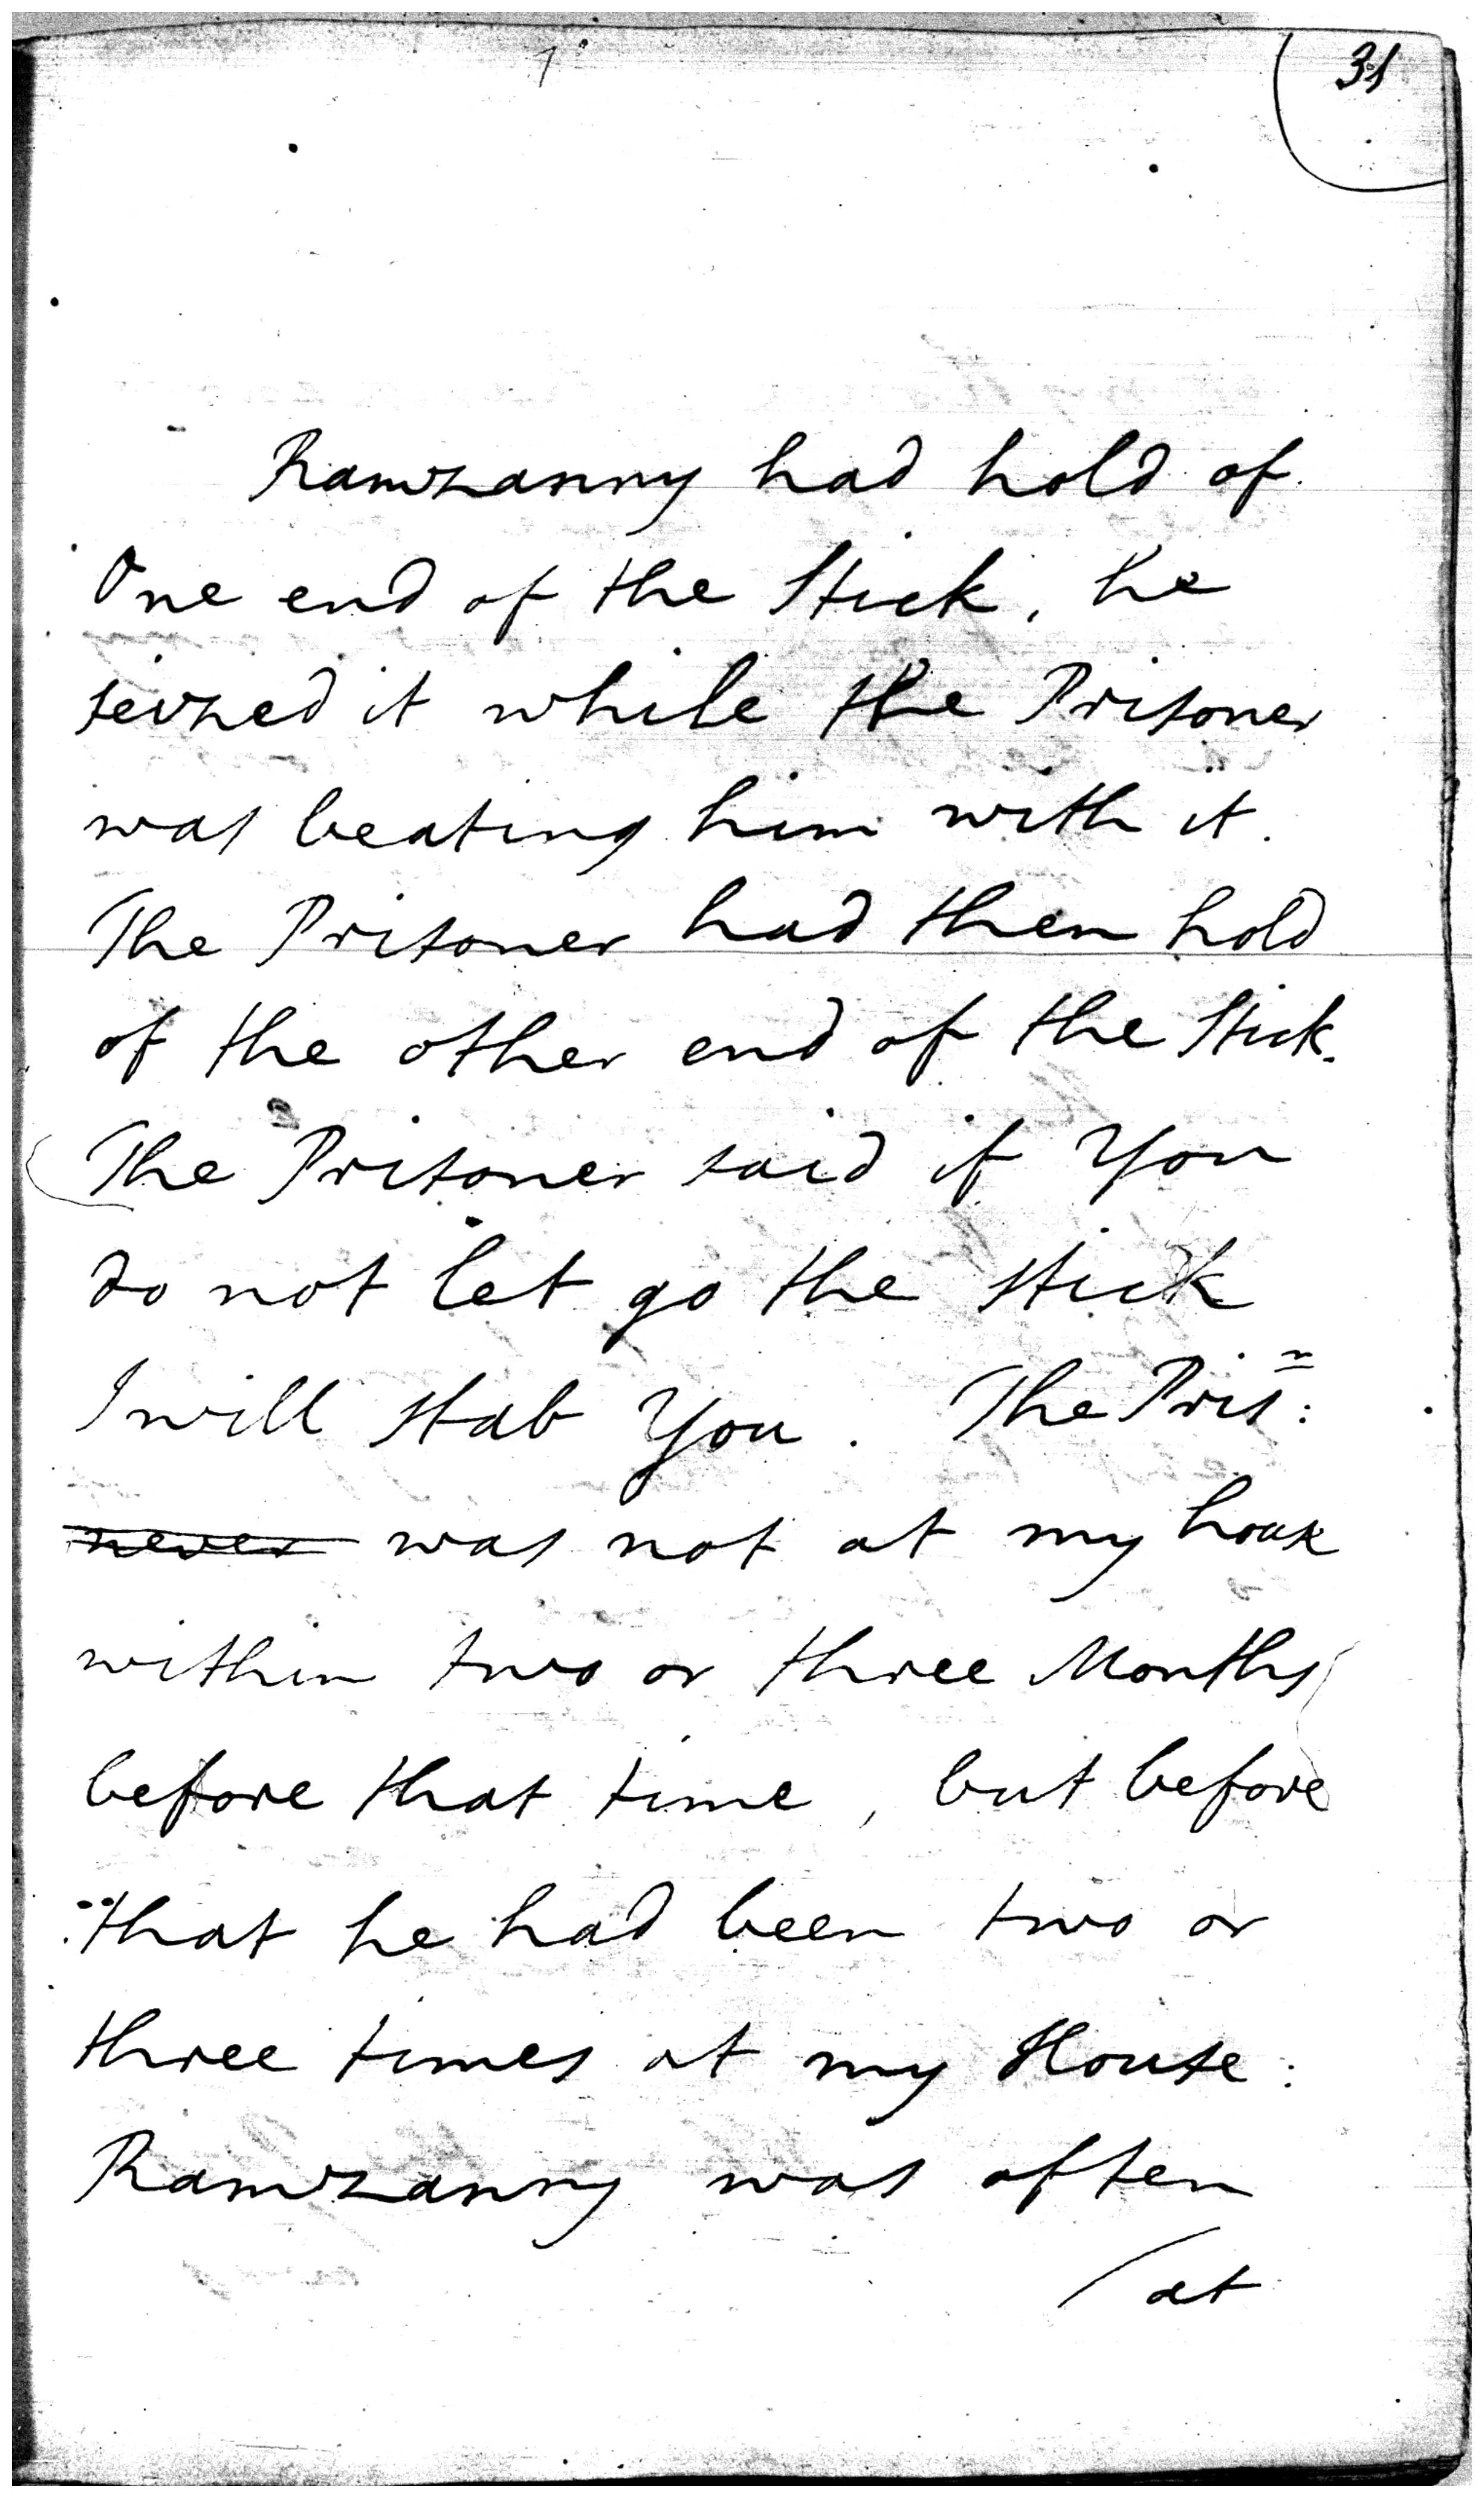 31
Ramzanny had hold of
One end of the Stick, he
seized it while the Prisoner
was beating him with it.
The Prisoner had then hold
of the other end of the Stick.
The Prisoner said if You
do not let go the stick
I will stab You. The Pris:ⁿ
never was not at my house
within two or three Months
before that time, but before
that he had been two or
three times at my House:
Ramzanny was often
at